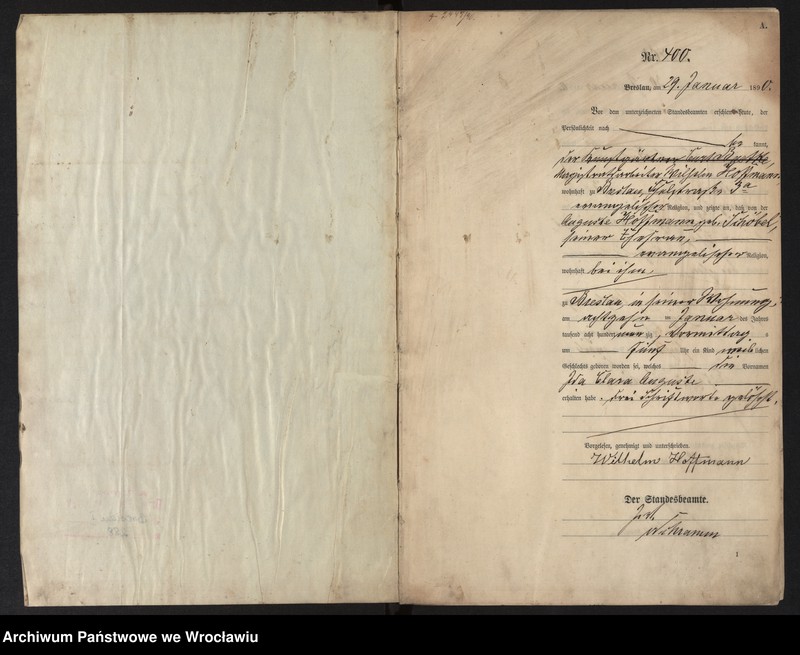 A.
Nr. 400.
Breslau, am 29. Januar 1890.
Vor dem unterzeichneten Standesbeamten erschien heute, der
Persönlichkeit nach
be kannt,
der Kunstgärtner
Magistratsarbeiter Wilhelm Hoffmann,
wohnhaft zu Breslau, 3a
evangelischer Religion, und zeigte an, daß von der
Auguste Hoffmann geb. Schöbel,
seiner Ehefrau,
evangelischer Religion,
wohnhaft bei ihm,
zu Breslau, in seiner Wohnung,
am achtzehn ten Januar des Jahres
tausend acht hundert neun zig, Vormittag s
um fünf Uhr ein Kind weib lichen
Geschlechts geboren worden sei, welches die Vornamen
Ida Clara Auguste
erhalten habe. Drei Schriftworte gelöscht.
Vorgelesen, genehmigt und unterschrieben
Wilhelm Hoffmann
Der Standesbeamte.
1
Archiwum Państwowe we Wrocławiu